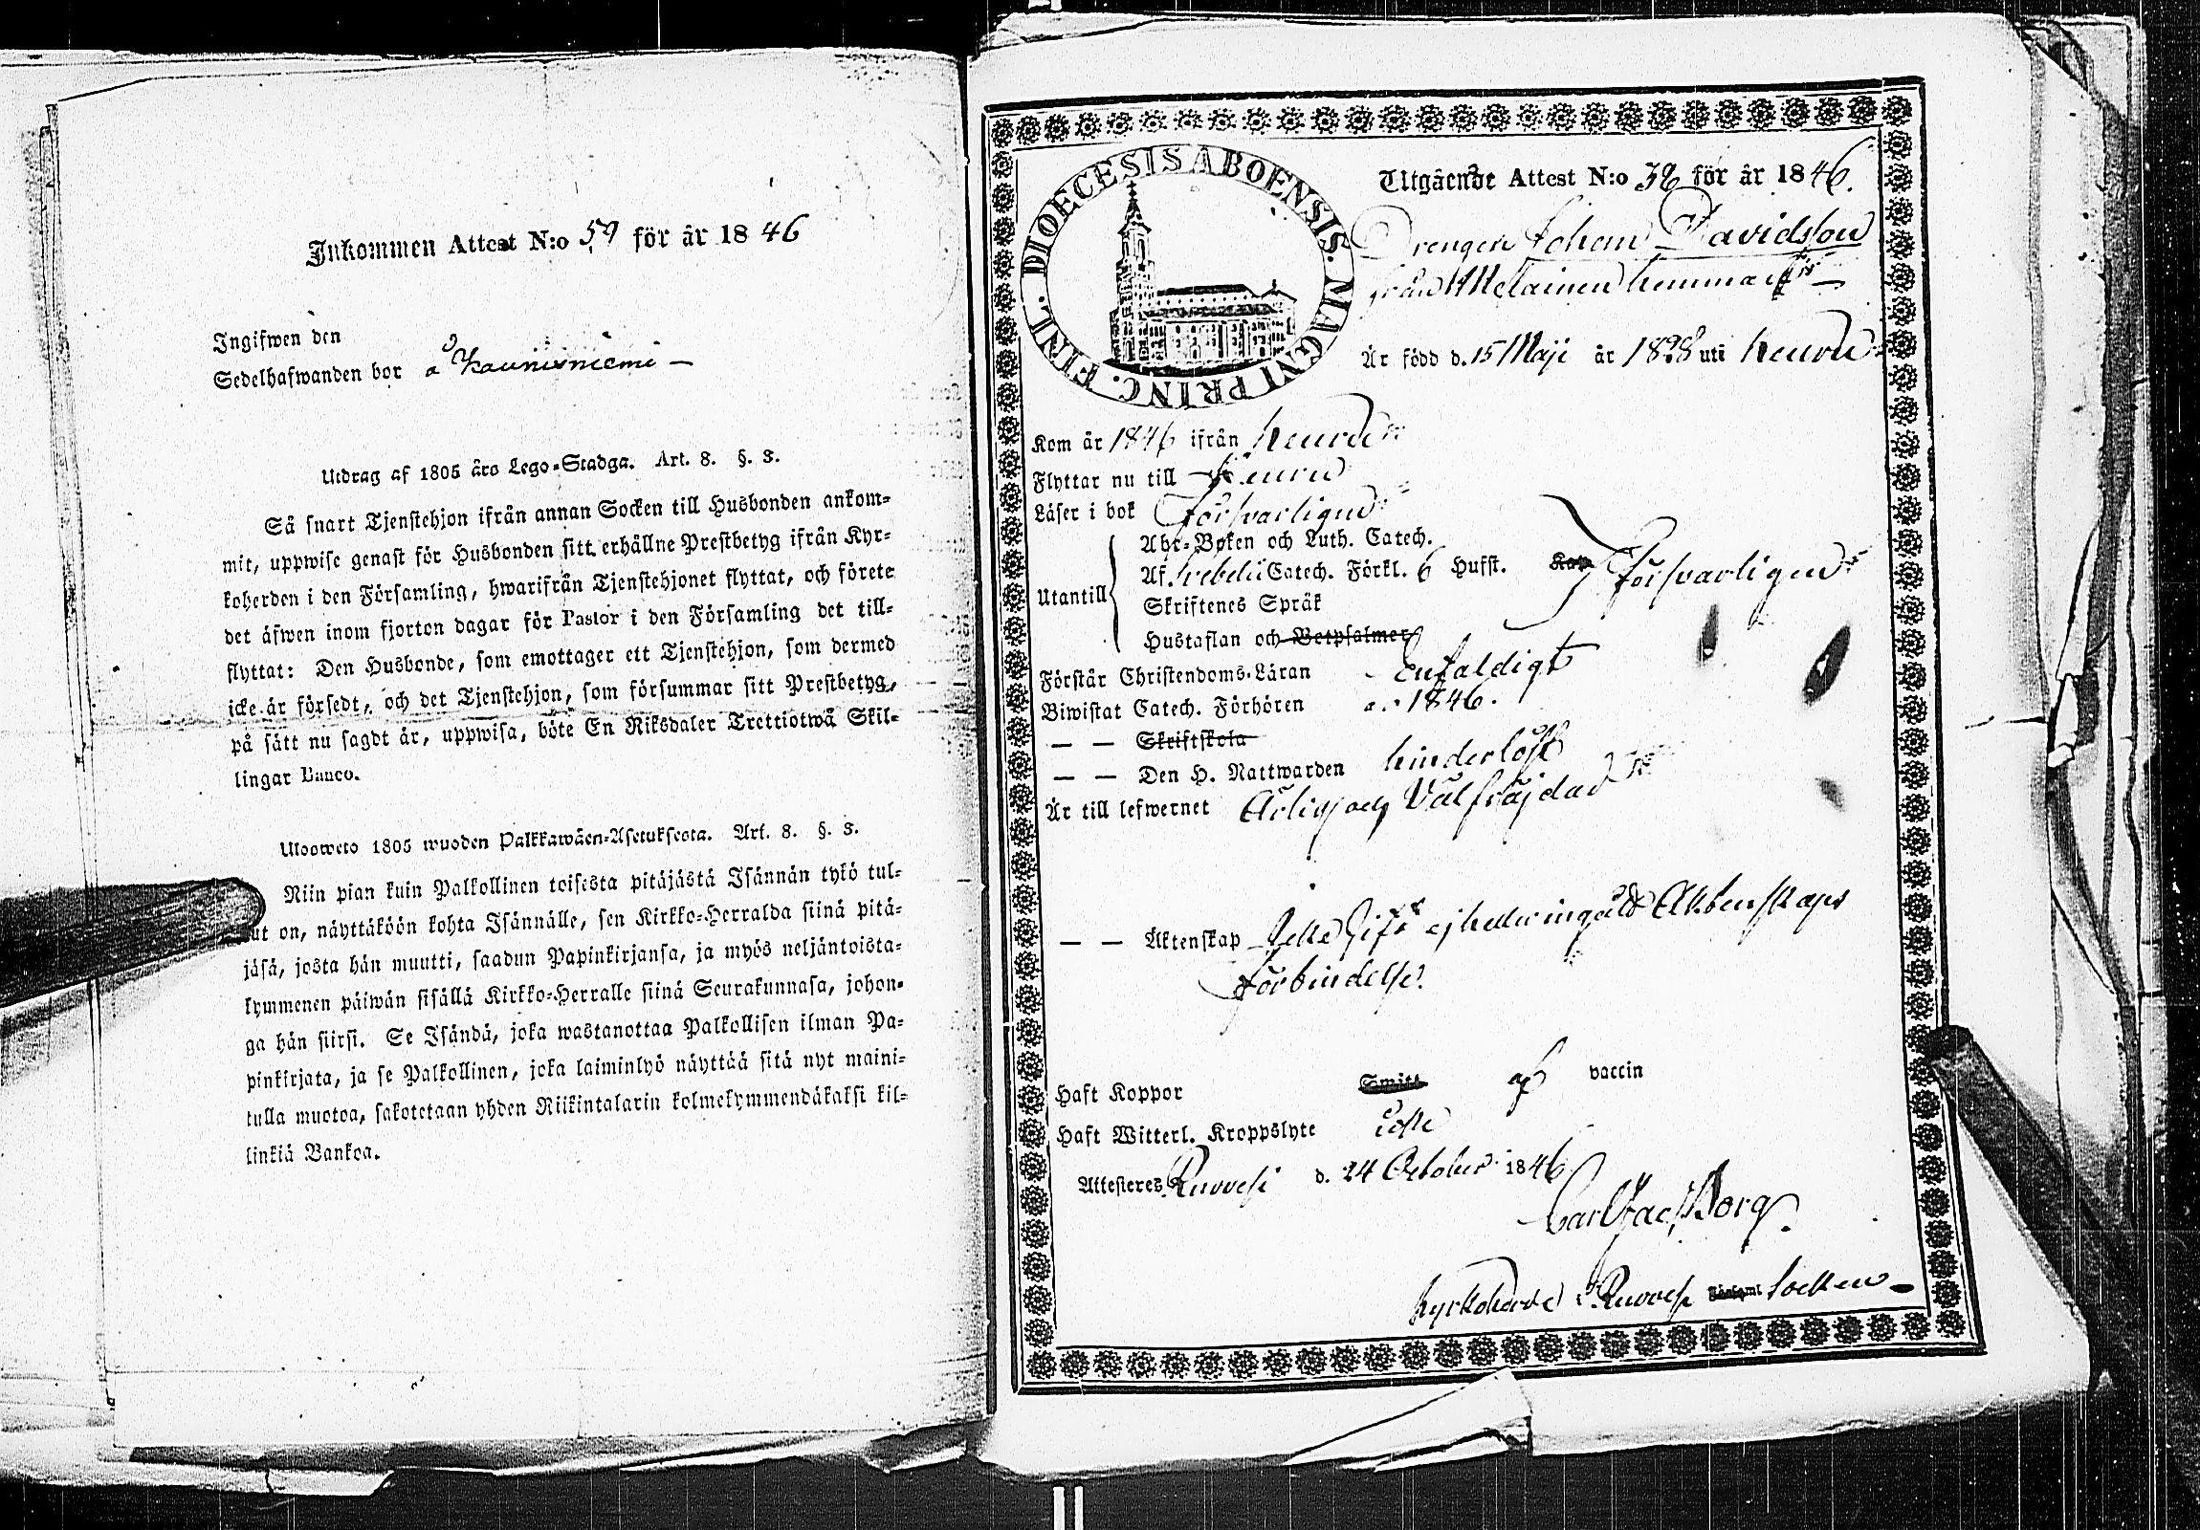 Inkommen Attest N:o 59 för år 1846
Ingifwen den
Sedelhafwanden bor å Kaunisniemi —
Utdrag af 1805 års Lego-Stadga. Art. 8. §. 3.
Så snart Tjenstehjon ifrån annan Socken till Husbonden ankom-
mit, uppwise genast för Husbonden sitt erhållne Prestbetyg ifrån Kyr-
koherden i den Församling, hwarifrån Tjenstehjonet flyttat, och förete
det äfwen inom fjorton dagar för Pastor i den Församling det till-
flyttat: Den Husbonde, som emottager ett Tjenstehjon, som dermed
icke är försedt, och det Tjenstehjon, som försummar sitt Prestbetyg,
på sätt nu sagdt är, uppwisa, böte En Riksdaler Trettiotwå Skil-
lingar Banco.
Ulosweto 1805 wuoden Palkkawäen-Asetuksesta. Art. 8. §. 3.
Niin pian kuin Palkollinen toisesta pitäjästä Isännän tykö tul-
lut on, näyttäköön kohta Isännälle, sen Kirkko-Herralda siinä pitä-
jäsä, josta hän muutti, saadun Papinkirjansa, ja myös neljäntoista-
kymmenen päiwän sisällä Kirkko-Herralle siinä Seurakunnasa, johon-
ga hän siirsi. Se Isändä, joka wastanottaa Palkollisen ilman Pa-
pinkirjata, ja se Palkollinen, joka laiminlyö näyttää sitä nyt maini-
tulla muotoa, sakotetaan yhden Riikintalarin kolmekymmendäkaksi kil-
linkiä Bankoa.
DIOECESIS ABOENSIS. MAGNI PRINC. FINL.
Utgående Attest N:o 38 för år 1846.
Drengen Johan Davidsson
från Melainen hemman —
Är född d. 15 Maji år 1828 uti Keuru
Kom år 1846 ifrån Keuru
Flyttar nu till Keuru
Läser i bok Försvarligen
Utantill
Abc-Boken och Luth. Catech.
Af Svebelii Catech. Förkl. 6 Hufst. Kap. Försvarligen
Skriftenes Språk
Hustaflan och Betpsalmer
Förstår Christendoms-Läran Enfaldigt
Biwistat Catech. Förhören a. 1846.
— — Skriftskola
— — Den H. Nattwarden hinderlöst
Är till lefwernet Ärlig och Välfräjdad
— — Äktenskap Icke Gift ej heller ingått Äktenskaps
Förbindelse.
Haft Koppor Smitt af vaccin
Haft Witterl. Kroppslyte Icke
Attesteres Ruovesi d. 24 October 1846
Carl Jac. Borg.
Kyrkoherde i Ruovesi Socken —